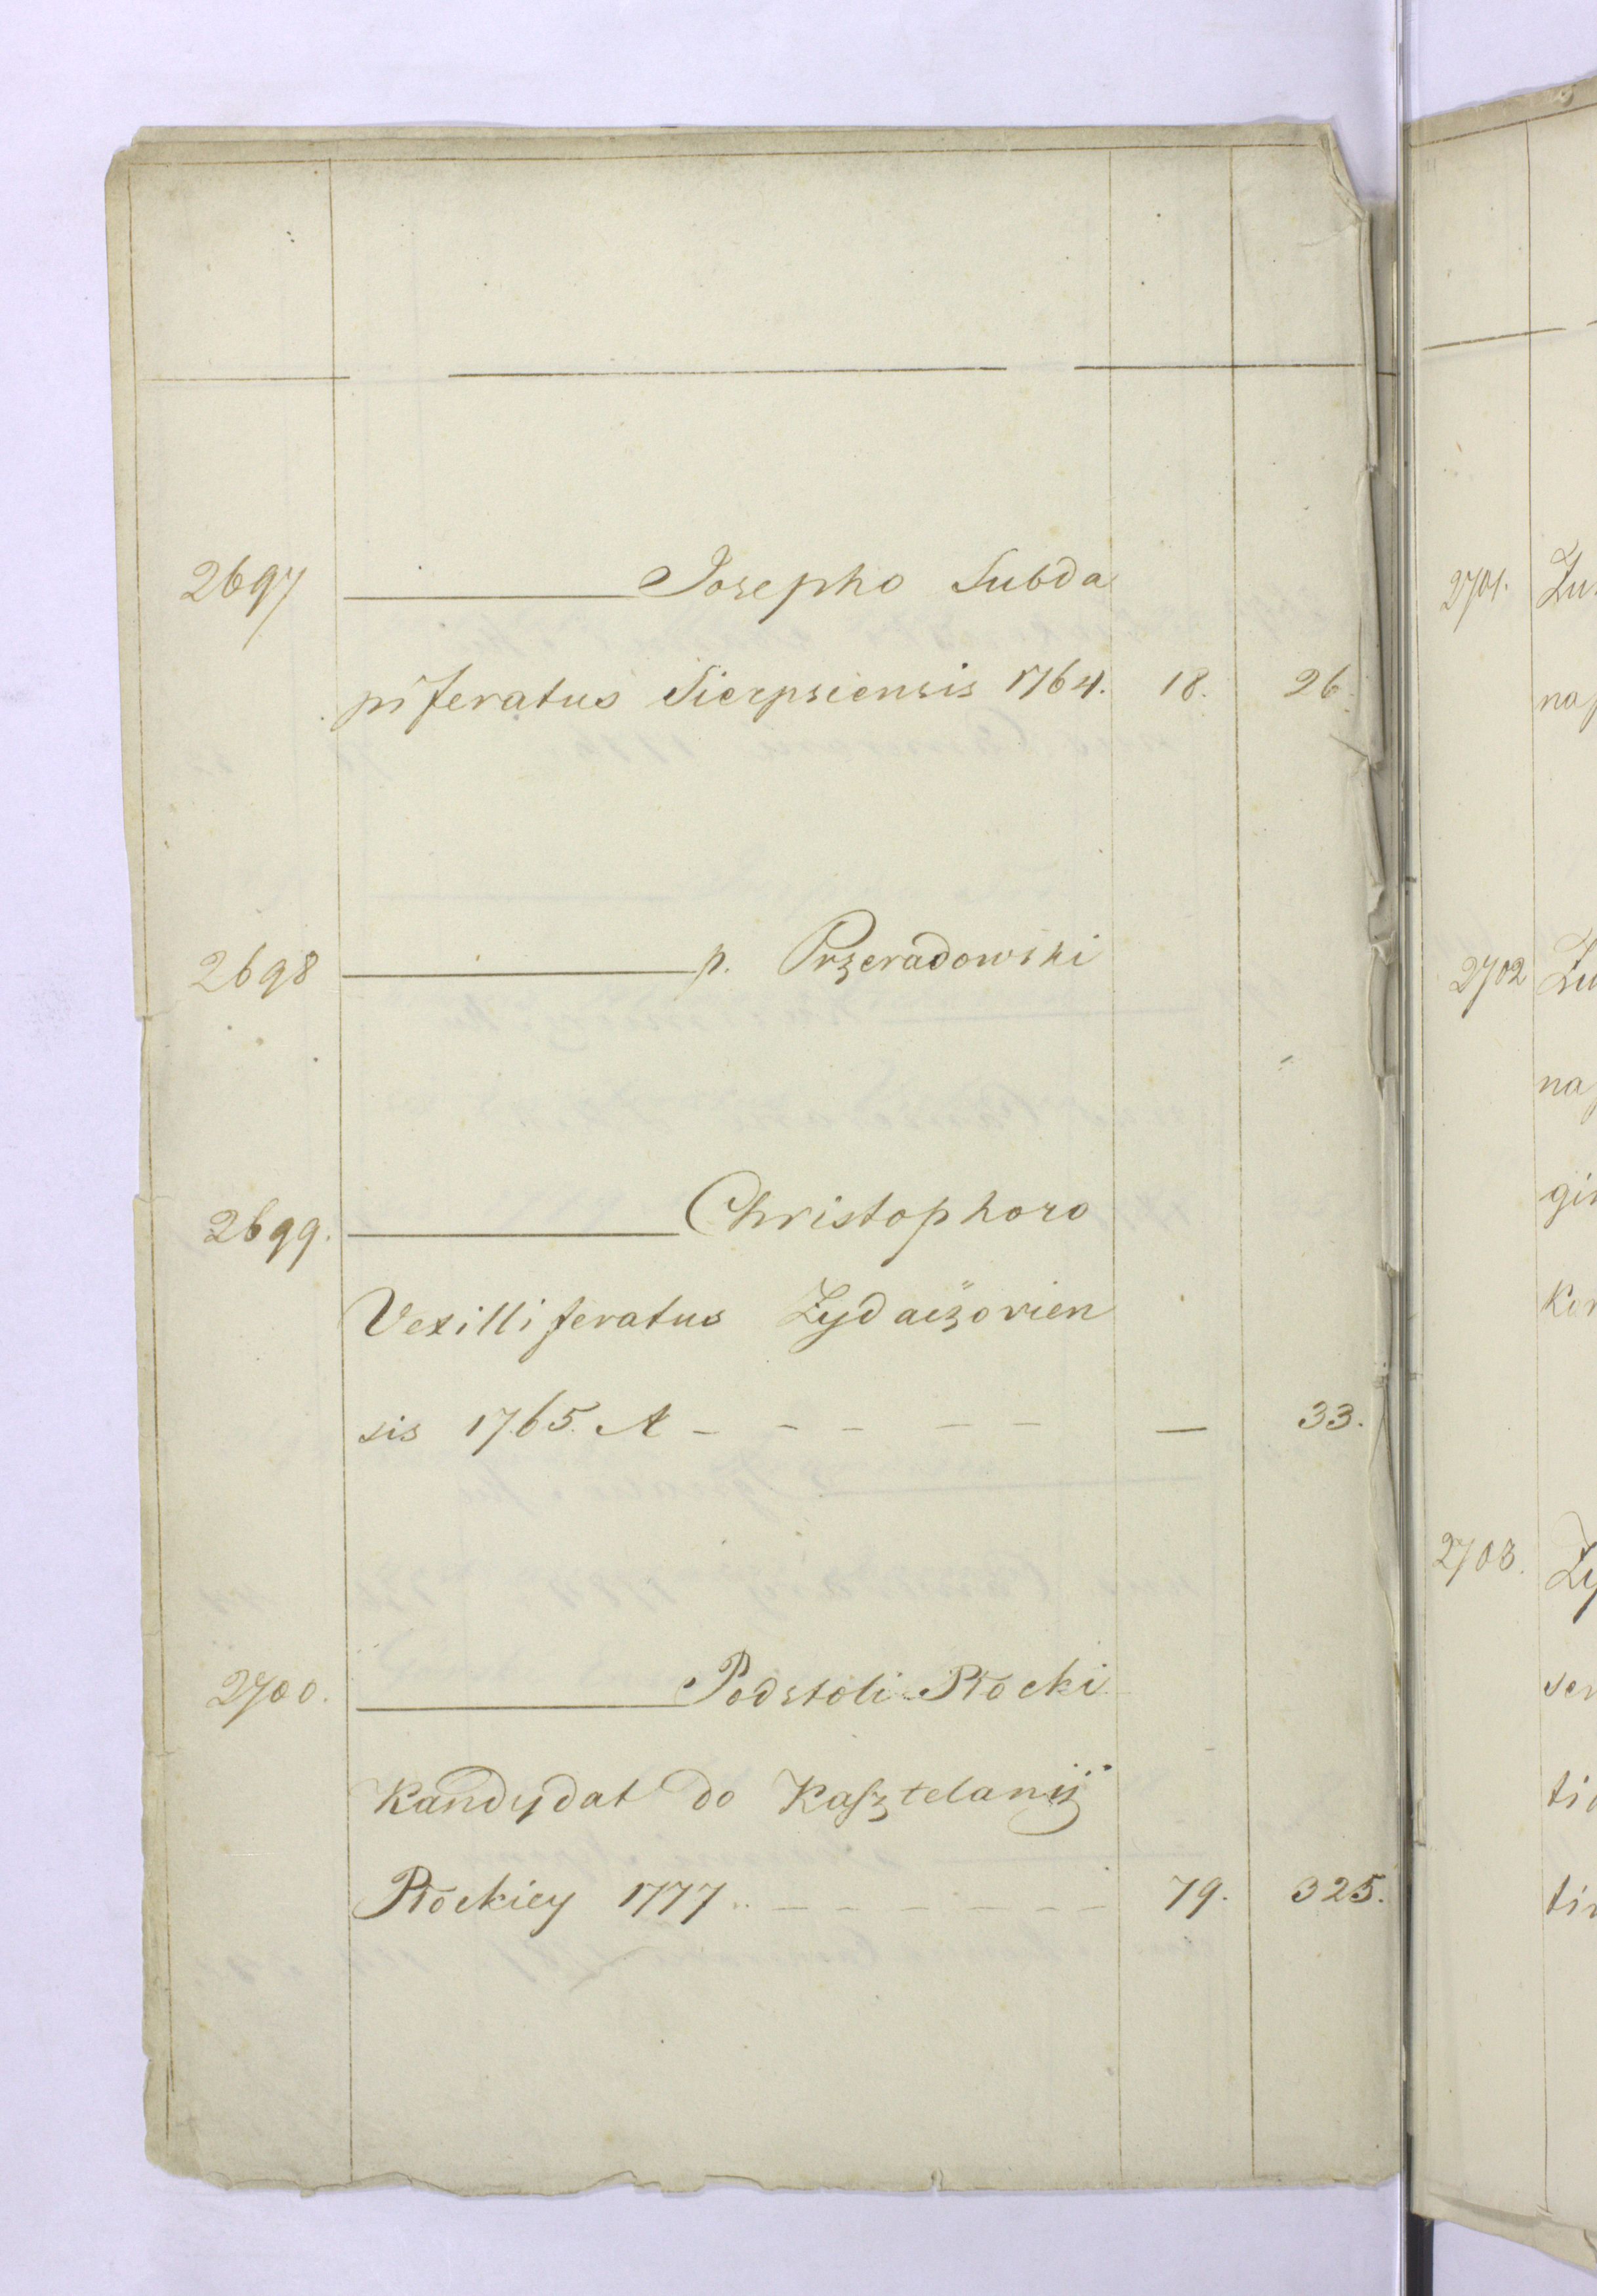 2697 Josepho Subda
piferatus Sierpsiensis 1764. 18. 26.
2698 p. Przeradowski
2699. Christophoro
Vexilliferatus Zydaczovien
sis 1765. A - - - - - — 33.
2700. Podstoli Płocki
Kandydat do Kasztelanij
Płockiey 1777 - - - - - - - 79. 325.
2701. Zu
nap
2702 Zu
na
gi
Ko
2703. Zy
ser
ti
ti